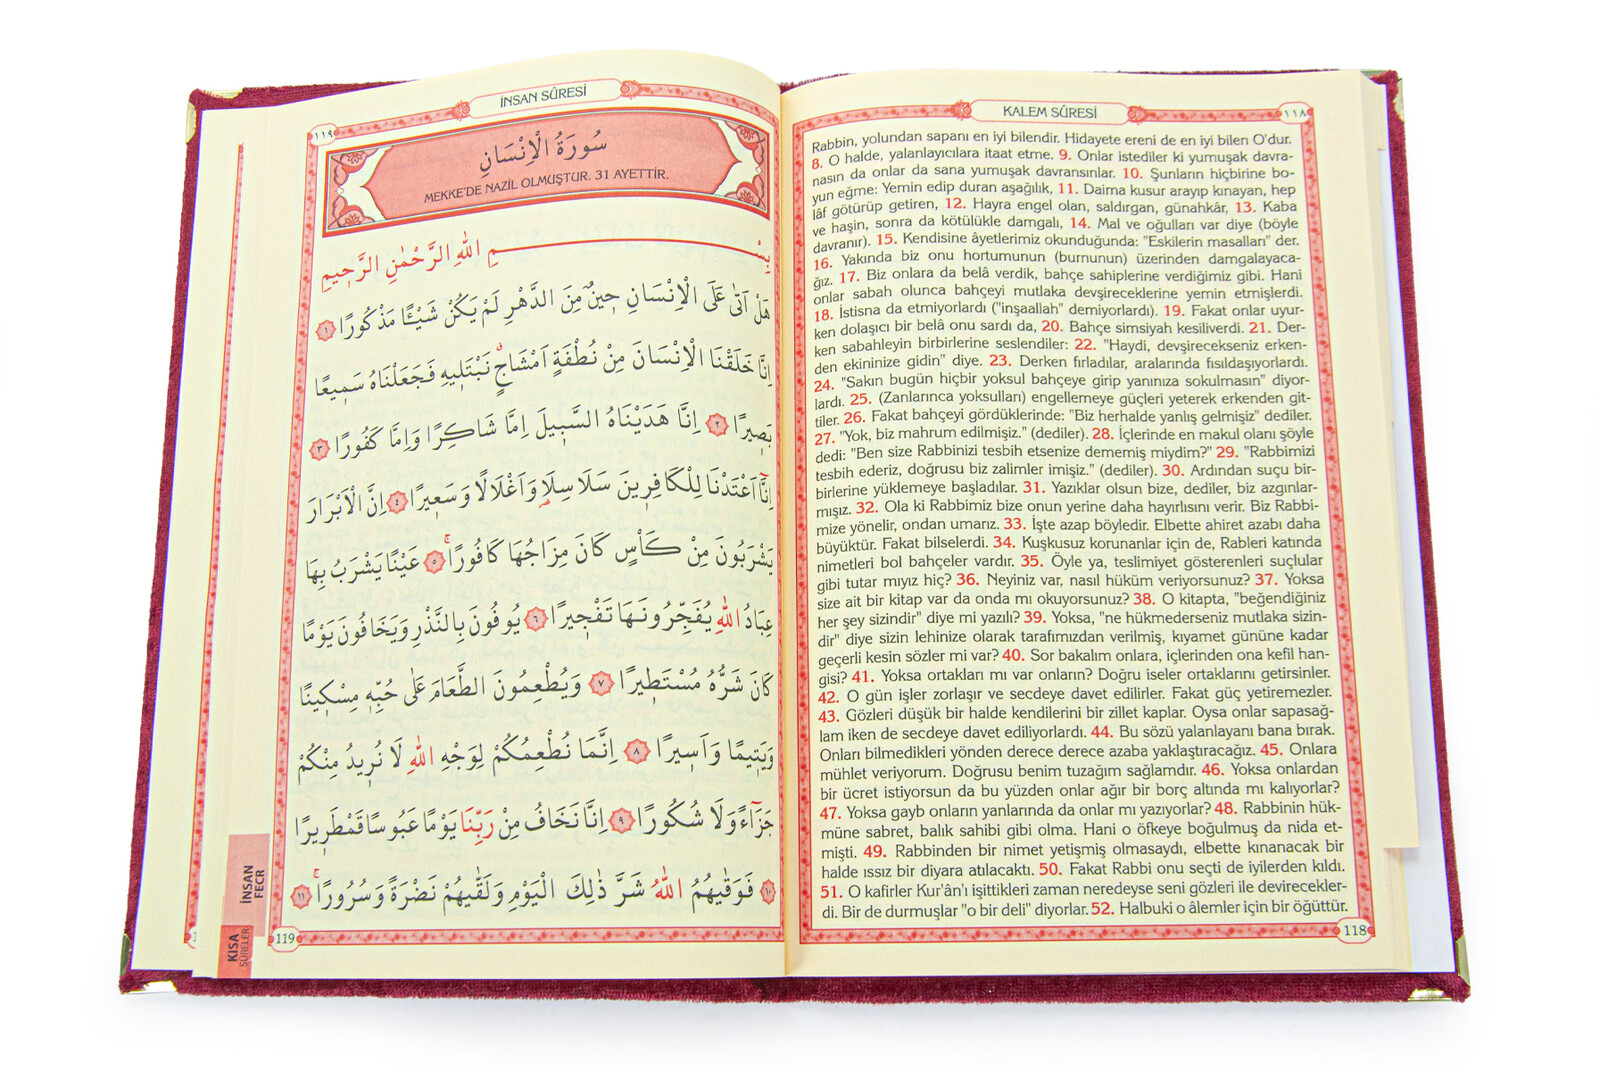 KALEM SÛRESİ
١١٨
Rabbin, yolundan sapanı en iyi bilendir. Hidayete ereni de en iyi bilen O'dur.
8. O halde, yalanlayıcılara itaat etme. 9. Onlar istediler ki yumuşak davra-
nasın da onlar da sana yumuşak davransınlar. 10. Şunların hiçbirine bo-
yun eğme: Yemin edip duran aşağılık, 11. Daima kusur arayıp kınayan, hep
lâf götürüp getiren, 12. Hayra engel olan, saldırgan, günahkâr, 13. Kaba
ve haşin, sonra da kötülükle damgalı, 14. Mal ve oğulları var diye (böyle
davranır). 15. Kendisine âyetlerimiz okunduğunda: "Eskilerin masalları" der.
16. Yakında biz onu hortumunun (burnunun) üzerinden damgalayaca-
ğız. 17. Biz onlara da belâ verdik, bahçe sahiplerine verdiğimiz gibi. Hani
onlar sabah olunca bahçeyi mutlaka devşireceklerine yemin etmişlerdi.
18. İstisna da etmiyorlardı ("inşaallah" demiyorlardı). 19. Fakat onlar uyur-
ken dolaşıcı bir belâ onu sardı da, 20. Bahçe simsiyah kesiliverdi. 21. Der-
ken sabahleyin birbirlerine seslendiler: 22. "Haydi, devşirecekseniz erken-
den ekininize gidin" diye. 23. Derken fırladılar, aralarında fısıldaşıyorlardı.
24. "Sakın bugün hiçbir yoksul bahçeye girip yanınıza sokulmasın" diyor-
lardı. 25. (Zanlarınca yoksulları) engellemeye güçleri yeterek erkenden git-
tiler. 26. Fakat bahçeyi gördüklerinde: "Biz herhalde yanlış gelmişiz" dediler.
27. "Yok, biz mahrum edilmişiz." (dediler). 28. İçlerinde en makul olanı şöyle
dedi: "Ben size Rabbinizi tesbih etsenize dememiş miydim?" 29. "Rabbimizi
tesbih ederiz, doğrusu biz zalimler imişiz." (dediler). 30. Ardından suçu bir-
birlerine yüklemeye başladılar. 31. Yazıklar olsun bize, dediler, biz azgınlar-
mışız. 32. Ola ki Rabbimiz bize onun yerine daha hayırlısını verir. Biz Rabbi-
mize yönelir, ondan umarız. 33. İşte azap böyledir. Elbette ahiret azabı daha
büyüktür. Fakat bilselerdi. 34. Kuşkusuz korunanlar için de, Rableri katında
nimetleri bol bahçeler vardır. 35. Öyle ya, teslimiyet gösterenleri suçlular
gibi tutar mıyız hiç? 36. Neyiniz var, nasıl hüküm veriyorsunuz? 37. Yoksa
size ait bir kitap var da onda mı okuyorsunuz? 38. O kitapta, "beğendiğiniz
her şey sizindir" diye mi yazılı? 39. Yoksa, "ne hükmederseniz mutlaka sizin-
dir" diye sizin lehinize olarak tarafımızdan verilmiş, kıyamet gününe kadar
geçerli kesin sözler mi var? 40. Sor bakalım onlara, içlerinden ona kefil han-
gisi? 41. Yoksa ortakları mı var onların? Doğru iseler ortaklarını getirsinler.
42. O gün işler zorlaşır ve secdeye davet edilirler. Fakat güç yetiremezler.
43. Gözleri düşük bir halde kendilerini bir zillet kaplar. Oysa onlar sapasağ-
lam iken de secdeye davet ediliyorlardı. 44. Bu sözü yalanlayanı bana bırak.
Onları bilmedikleri yönden derece derece azaba yaklaştıracağız. 45. Onlara
mühlet veriyorum. Doğrusu benim tuzağım sağlamdır. 46. Yoksa onlardan
bir ücret istiyorsun da bu yüzden onlar ağır bir borç altında mı kalıyorlar?
47. Yoksa gayb onların yanlarında da onlar mı yazıyorlar? 48. Rabbinin hük-
müne sabret, balık sahibi gibi olma. Hani o öfkeye boğulmuş da nida et-
mişti. 49. Rabbinden bir nimet yetişmiş olmasaydı, elbette kınanacak bir
halde ıssız bir diyara atılacaktı. 50. Fakat Rabbi onu seçti de iyilerden kıldı.
51. O kafirler Kur'ân'ı işittikleri zaman neredeyse seni gözleri ile devirecekler-
di. Bir de durmuşlar "o bir deli" diyorlar. 52. Halbuki o âlemler için bir öğüttür.
118
İNSAN SÛRESİ
١١٩
سُورَةُ الْاِنْسَانِ
MEKKE'DE NAZİL OLMUŞTUR. 31 AYETTİR.
بِسْمِ اللّٰهِ الرَّحْمٰنِ الرَّحٖيمِ
هَلْ اَتٰى عَلَى الْاِنْسَانِ حٖينٌ مِنَ الدَّهْرِ لَمْ يَكُنْ شَيْـًٔا مَذْكُورًا ١
اِنَّا خَلَقْنَا الْاِنْسَانَ مِنْ نُطْفَةٍ اَمْشَاجٍ نَبْتَلٖيهِ فَجَعَلْنَاهُ سَمٖيعًا
بَصٖيرًا ٢ اِنَّا هَدَيْنَاهُ السَّبٖيلَ اِمَّا شَاكِرًا وَاِمَّا كَفُورًا ٣
اِنَّٓا اَعْتَدْنَا لِلْكَافِرٖينَ سَلَاسِلَا وَاَغْلَالًا وَسَعٖيرًا ٤ اِنَّ الْاَبْرَارَ
يَشْرَبُونَ مِنْ كَاْسٍ كَانَ مِزَاجُهَا كَافُورًا ٥ عَيْنًا يَشْرَبُ بِهَا
عِبَادُ اللّٰهِ يُفَجِّرُونَهَا تَفْجٖيرًا ٦ يُوفُونَ بِالنَّذْرِ وَيَخَافُونَ يَوْمًا
كَانَ شَرُّهُ مُسْتَطٖيرًا ٧ وَيُطْعِمُونَ الطَّعَامَ عَلٰى حُبِّهٖ مِسْكٖينًا
وَيَتٖيمًا وَاَسٖيرًا ٨ اِنَّمَا نُطْعِمُكُمْ لِوَجْهِ اللّٰهِ لَا نُرٖيدُ مِنْكُمْ
جَزَٓاءً وَلَا شُكُورًا ٩ اِنَّا نَخَافُ مِنْ رَبِّنَا يَوْمًا عَبُوسًا قَمْطَرٖيرًا
١٠ فَوَقٰيهُمُ اللّٰهُ شَرَّ ذٰلِكَ الْيَوْمِ وَلَقّٰيهُمْ نَضْرَةً وَسُرُورًا ١١
119
İNSAN
FECR
KISA
SÛRELER